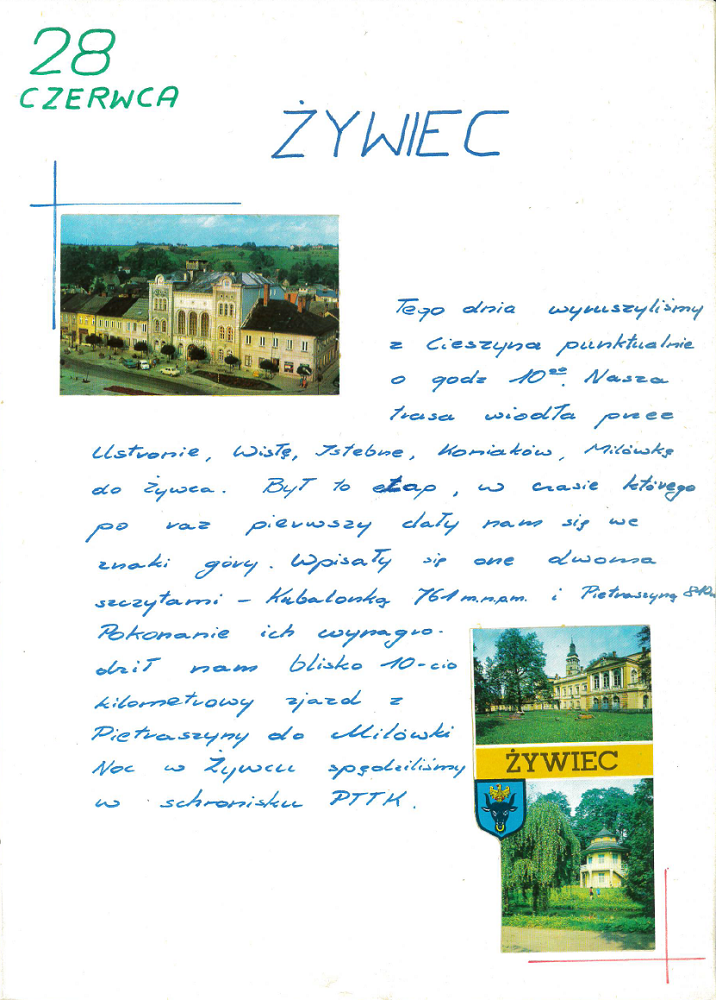 28
CZERWCA
ŻYWIEC
Tego dnia wyruszyliśmy
z Cieszyna punktualnie
o godz 10⁰⁰. Nasza
trasa wiodła przez
Ustronie, Wisłę, Istebne, Koniaków, Milówkę
do Żywca. Był to etap, w czasie którego
po raz pierwszy dały nam się we
znaki góry. Wpisały się one dwoma
szczytami - Kubalonką 761 m.n.p.m. i Pietraszyną 810m
Pokonanie ich wynagro-
dził nam blisko 10-cio
kilometrowy zjazd z
Pietraszyny do Milówki
Noc w Żywcu spędziliśmy
w schronisku PTTK.
ŻYWIEC